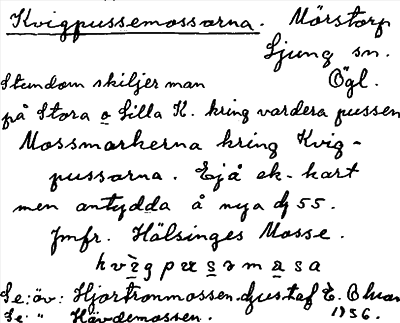 Kvigpussemossarna. Mörstorp
Ljung sn.
Stundom skiljer man Ögl.
på Stora o Lilla K. kring vardera pussen
Mossmarkerna kring Kvig-
pussarna. Ej å ek-kart
men antydda å nya dj 55.
Jmfr. Hälsinges Mosse.
Se: äv: Hjortronmossen. Gustaf E.
Se: " Hävdemossen. 1936.